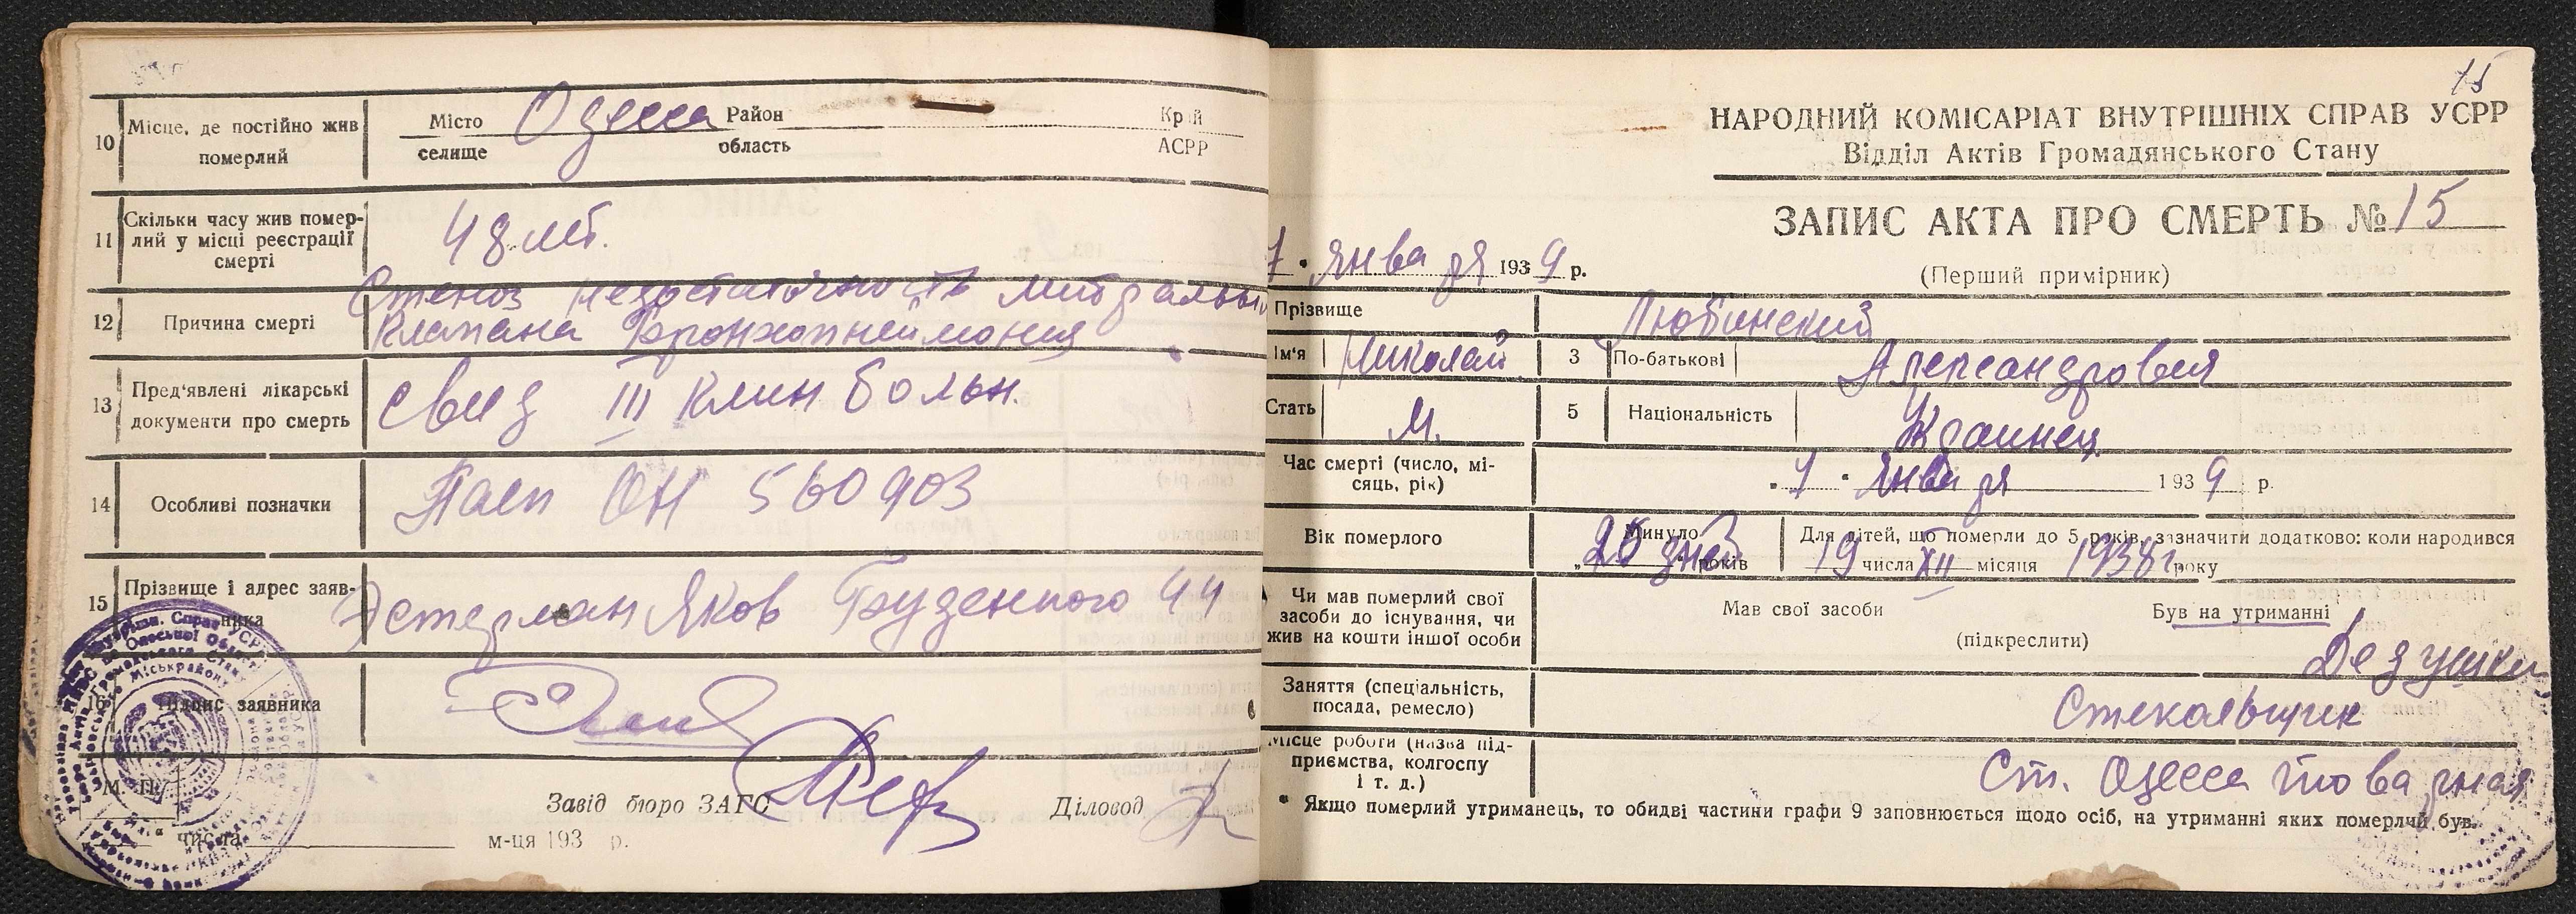 10 Місце, де постійно жив померлий
Місто Одесса Район Край
селище область АСРР
11 Скільки часу жив помер-
лий у місці реєстрації
смерті
48 лет.
12 Причина смерті
Стеноз недостаточность митральн
клапана Бронхопнеймония
13 Пред'явлені лікарські
документи про смерть
Свид III Клин больн.
14 Особливі позначки
Пасп ОН 560903
15 Прізвище і адрес заяв-
ника
Эстерман Яков Буденного 44
16 Підпис заявника
Завід бюро ЗАГС Діловод
М. П.
числа м-ця 193 р.
15
НАРОДНИЙ КОМІСАРІАТ ВНУТРІШНІХ СПРАВ УСРР
Відділ Актів Громадянського Стану
ЗАПИС АКТА ПРО СМЕРТЬ № 15
7 • января 1939 р.
(Перший примірник)
Прізвище Любинский
Ім'я Николай 3 По-батькові Александрович
Стать М. 5 Національність Украинец
Час смерті (число, мі-
сяць, рік)
„ 7 " января 1939 р.
Вік померлого
Минуло
років
20 дней
Для дітей, що померли до 5 років, зазначити додатково: коли народився
19 числа XII місяця 1938 г року
Чи мав померлий свої
засоби до існування, чи
жив на кошти іншої особи
Мав свої засоби Був на утриманні
(підкреслити)
Дедушки
Заняття (спеціальність,
посада, ремесло)
Стекольщик
Місце роботи (назва під-
приємства, колгоспу
і т. д.)
Ст. Одесса товарная
* Якщо померлий утриманець, то обидві частини графи 9 заповнюється щодо осіб, на утриманні яких померлий був.